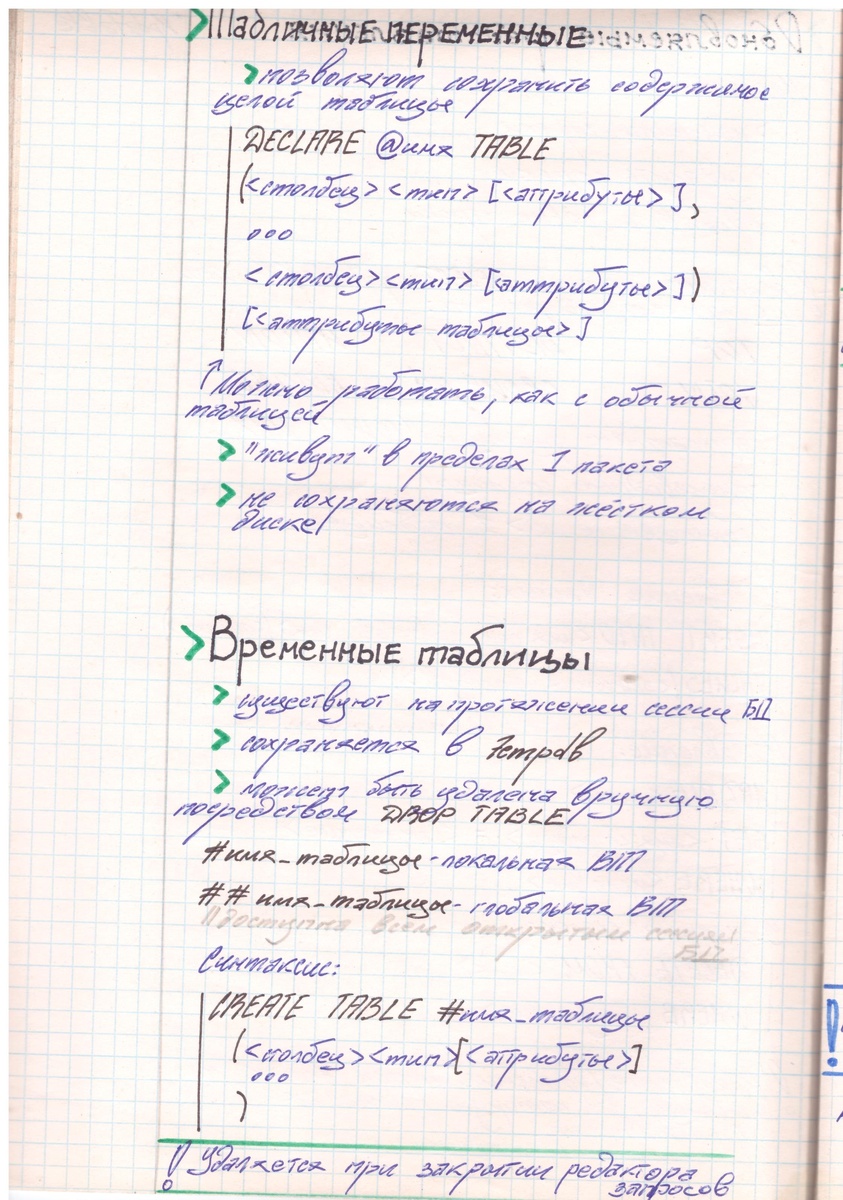 Табличные переменные
позволяют сохранить содержимое
целой таблицы
DECLARE @имя TABLE
(<столбец> <тип> [<аттрибуты>],
ооо
<столбец> <тип> [<аттрибуты>])
[<аттрибуты таблицы>]
↑Можно работать, как с обычной
таблицей
"живут" в пределах 1 пакета
не сохраняются на жёстком
диске
Временные таблицы
существуют на протяжении сессии БД
сохраняется в Tempdb
может быть удалена вручную
посредством DROP TABLE
#имя_таблицы - локальная ВТ
##имя_таблицы - глобальная ВТ
//доступна всем открытым сессиям
БД
Синтаксис:
CREATE TABLE #имя_таблицы
(<столбец> <тип> [<аттрибуты>]
ооо
)
! Удаляется при закрытии редактора
запросов